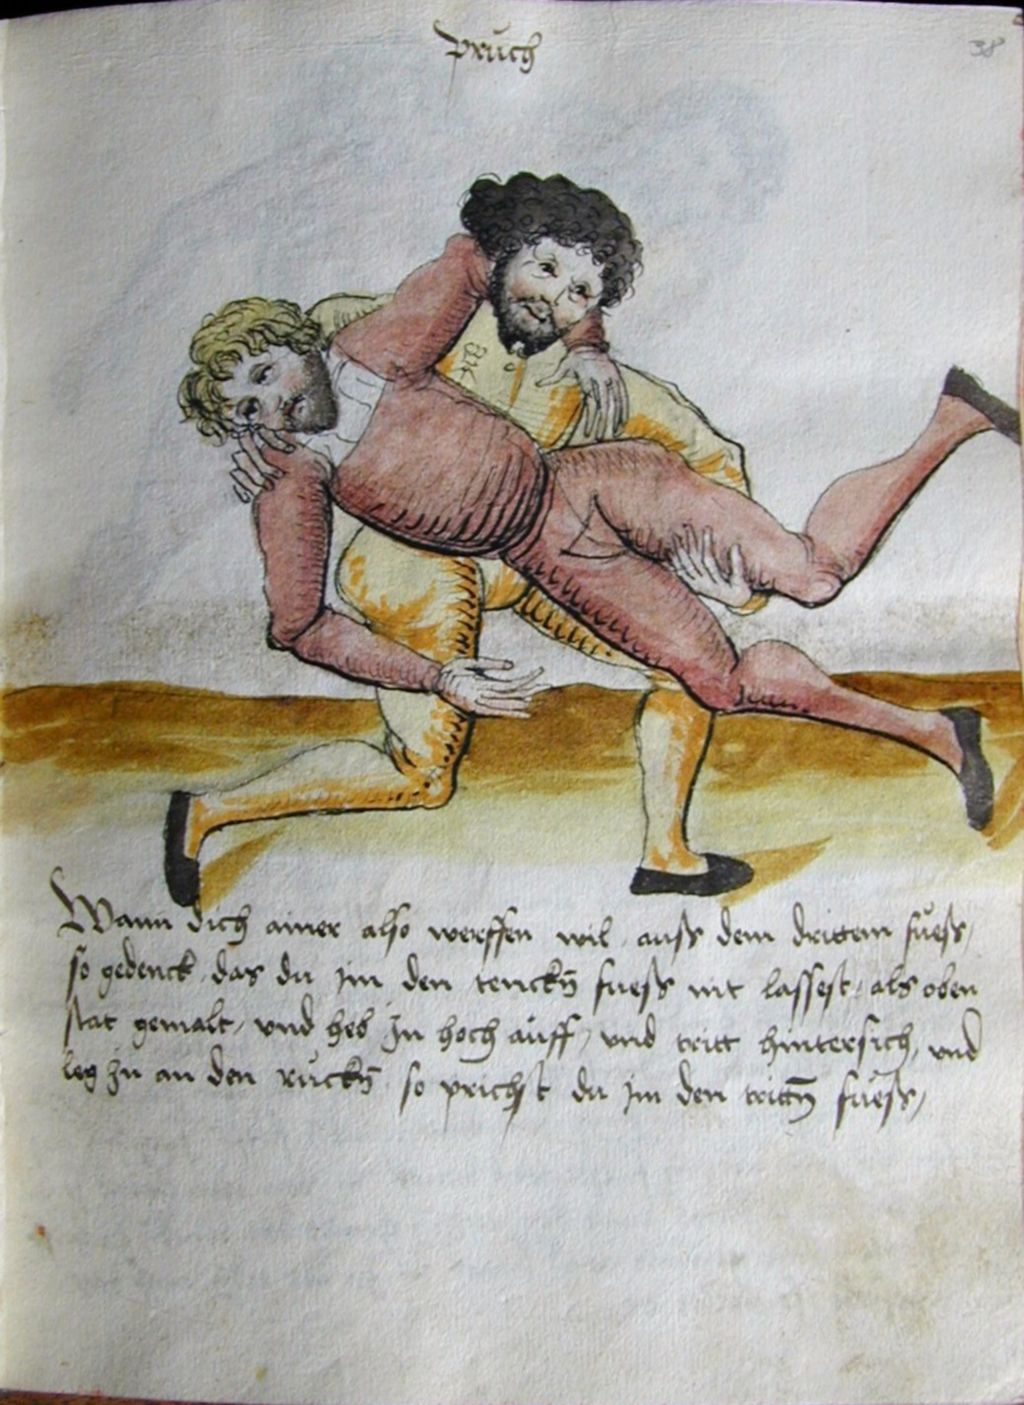 pruch
38
Wann dich ainer also werffen wil auss dem dritem fuess,
so gedenck das du im den tenckn̄ fuess nit lassest, als oben
stat gemalt, vnd heb In hoch auff, vnd tritt hintersich, vnd
leg In an den ruckn̄ so prichst du im den trittn̄ fuess,